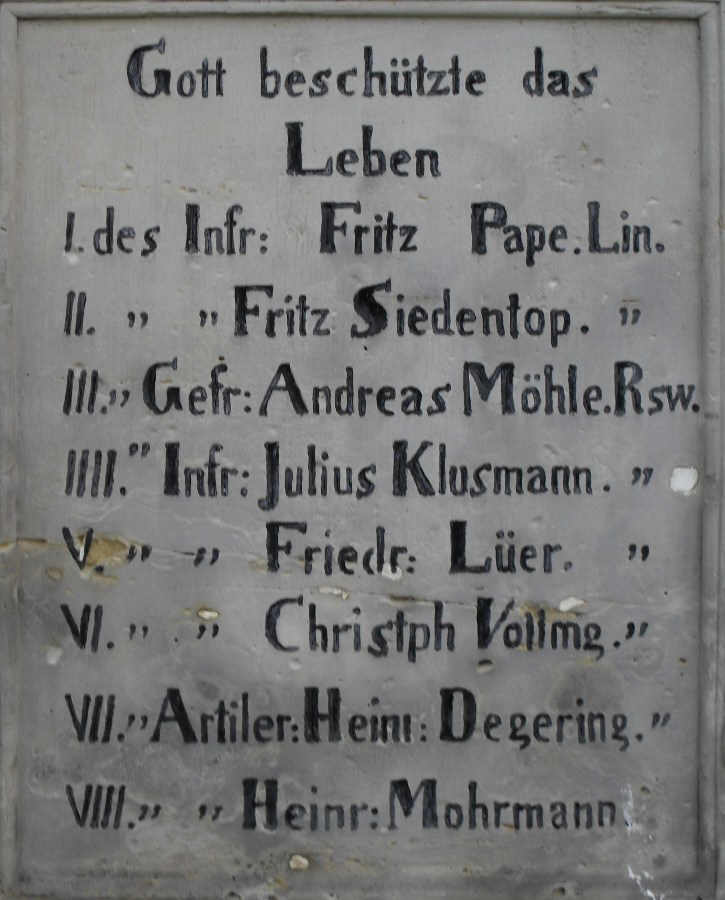 Gott beschützte das
Leben
I. des Infr: Fritz Pape. Lin.
II. „ „ Fritz Siedentop. „
III. „ Gefr: Andreas Möhle. Rsw.
IIII. " Infr: Julius Klusmann. „
V. „ „ Friedr: Lüer. „
VI. „ „ Christph Vollmg. „
VII. „ Artiler: Heinr: Degering. „
VIII. „ „ Heinr: Mohrmann.